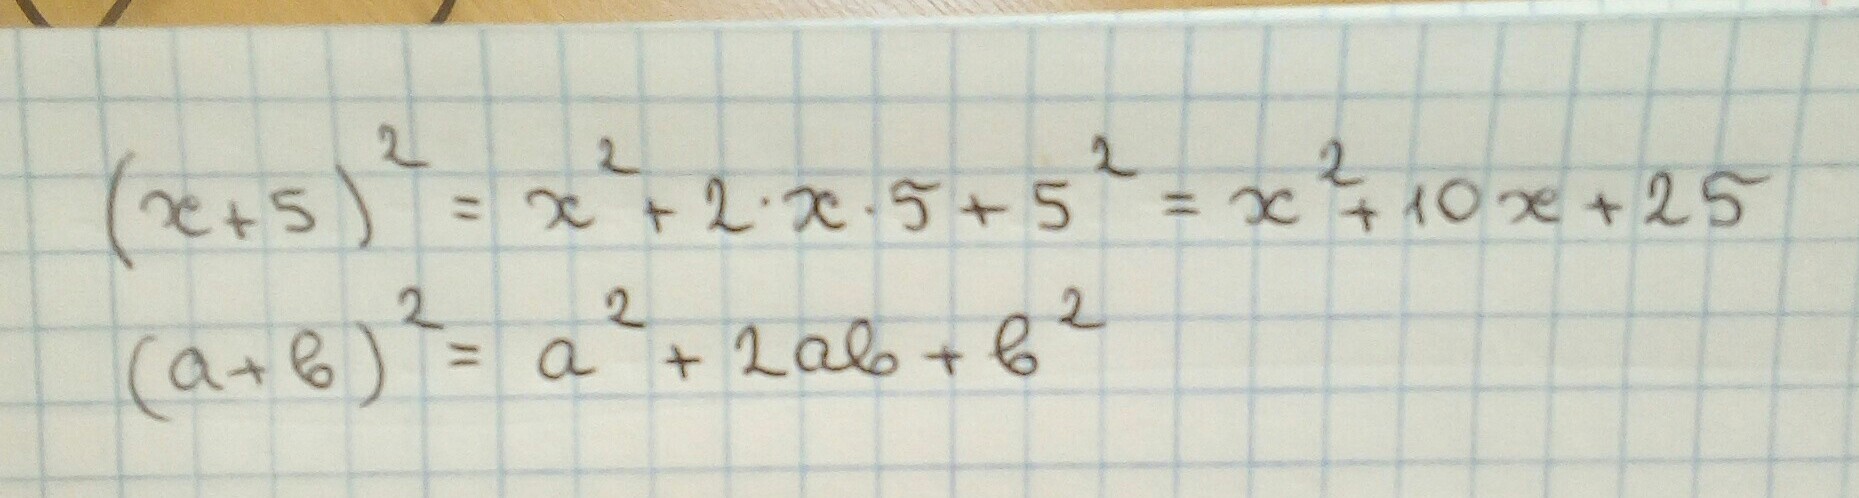 (x+5)² = x² + 2·x·5 + 5² = x² + 10x + 25
(a+b)² = a² + 2ab + b²